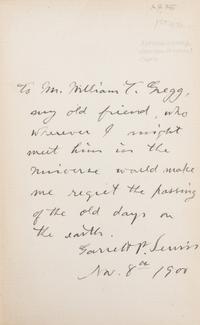 To Mr. William T. Gregg,
my old friend, who
wherever I might
meet him in the
Universe would make
me regret the passing
of the old days on
the earth.
Garrett P. Serviss
Nov. 8th 1900